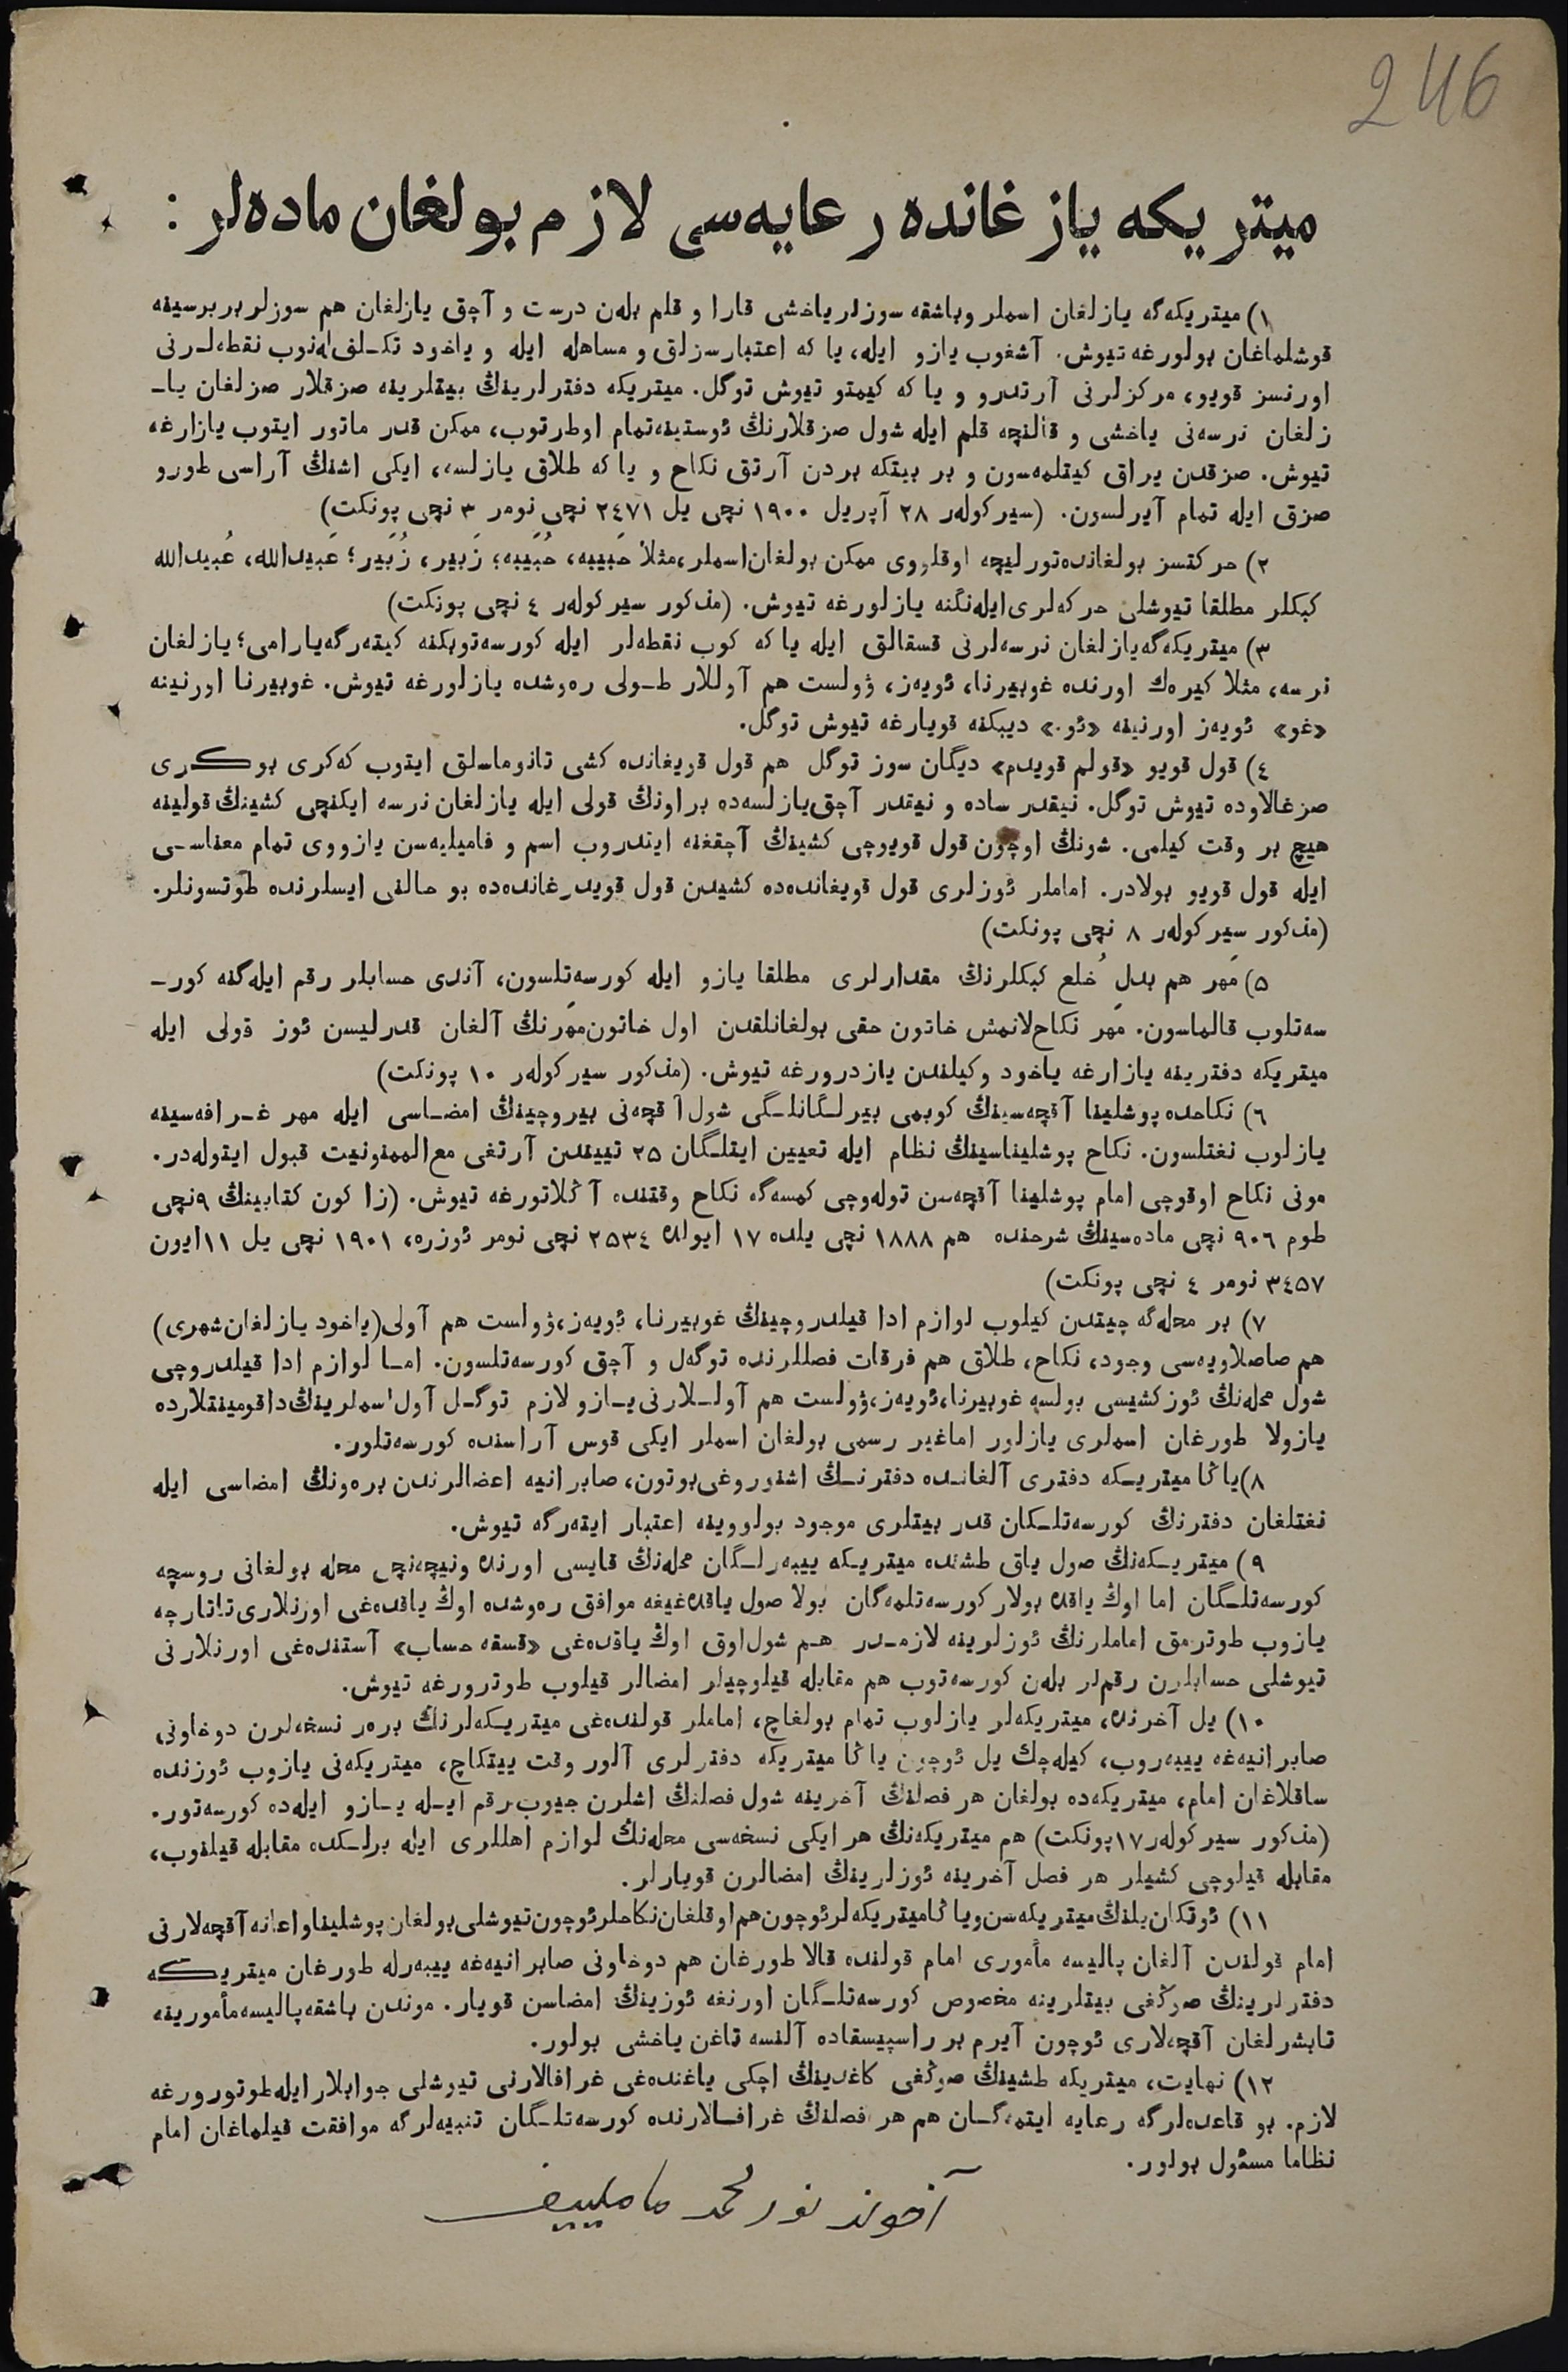 246
ميتريكه يازغانده رعايه‌سى لازم بولغان ماده‌لر :
١) ميتريكه‌گه يازلغان اسملر وباشقه سوزلر ياخشى قارا و قلم بله‌ن درست و آچق يازلغان هم سوزلر بربرسينه
قوشلماغان بولورغه تيوش. آشغوب يازو ايله، يا كه اعتبارسزلق و مساهله ايله و ياخود تكـلف‌له‌نوب نقطه‌لـرنى
اورنسز قويو، مركزلرنى آرتدرو و يا كه كيمتو تيوش توگل. ميتريكه دفترلرينڭ بيتلرينه صزقلار صزلغان ياـ
زلغان نرسه‌نى ياخشى و قالنچه قلم ايله شول صزقلارنڭ ئوستينه‌تمام اوطرتوب، ممكن قدر ماتور ايتوب يازارغه
تيوش. صزقدن يراق كيتلمه‌سون و بر بيتكه بردن آرتق نكاح و يا كه طلاق يازلسه، ايكى اشنڭ آراسى طورو
صزق ايله تمام آيرلسون. (سيركوله‌ر ٢٨ آپريل ١٩٠٠ نچى يل ٢٤٧١ نچى نومر ٣ نچى پونكت)
٢) حركتسز بولغانده‌تورليچه اوقلووى ممكن بولغان‌اسملر،مثلاً حَبيبه، حُبَيبه؛ زَبير، زُبَير؛ عَبيدالله، عُبيدالله
كبكلر مطلقا تيوشلى حركه‌لرى‌ايله‌نگنه يازلورغه تيوش. (مذكور سيركوله‌ر ٤ نچى پونكت)
٣) ميتريكه‌گه‌يازلغان نرسه‌لرنى قسقالق ايله يا كه كوب نقطه‌لر ايله كورسه‌توبكنه كيته‌رگه‌يارامى؛ يازلغان
نرسه، مثلا كيره‌ك اورنده غوبيرنا، ئويه‌ز، ۋولست هم آوللار طـولى ره‌وشده يازلورغه تيوش. غوبيرنا اورنينه
«غو» ئويه‌ز اورنينه «ئو.» ديبكنه قويارغه تيوش توگل.
٤) قول قويو «قولم قويدم» ديگان سوز توگل هم قول قويغانده كشى تانوماسلق ايتوب كه‌كرى بوكـرى
صزغالاوده تيوش توگل. نيقدر ساده و نيقدر آچق‌يازلسه‌ده براونڭ قولى ايله يازلغان نرسه ايكنچى كشينڭ قولينه
هيچ بر وقت كيلمى. شونڭ اوچون قول قويوچى كشينڭ آچقغنه ايتدروب اسم و فاميليه‌سن يازووى تمام معناسـى
ايله قول قويو بولادر. اماملر ئوزلرى قول قويغانده‌ده كشيدن قول قويدرغانده‌ده بو حالنى ايسلرنده طوتسونلر.
(مذكور سيركوله‌ر ٨ نچى پونكت)
٥) مَهر هم بدلِ خُلع كبكلرنڭ مقدارلرى مطلقا يازو ايله كورسه‌تلسون، آندى حسابلر رقم ايله‌گنه كورـ
سه‌تلوب قالماسون. مَهر نكاح‌لانمش خاتون حقى بولغانلقدن اول خاتون‌مَهرنڭ آلغان قدرليسن ئوز قولى ايله
ميتريكه دفترينه يازارغه ياخود وكيلندن يازدرورغه تيوش. (مذكور سيركوله‌ر ١٠ پونكت)
٦) نكاحده پوشلينا آقچه‌سينڭ كوبمى بيرلـگانلـگى شول آقچه‌نى بيروچينڭ امضـاسى ايله مهر غـرافه‌سينه
يازلوب نغتلسون. نكاح پوشليناسينڭ نظام ايله تعيين ايتلـگان ٢٥ تييندن آرتغى مع‌الممنونيت قبول ايتوله‌در.
مونى نكاح اوقوچى امام پوشلينا آقچه‌سن توله‌وچى كمسه‌گه نكاح وقتنده آڭلاتورغه تيوش. (زاكون كتابينڭ ٩نچى
طوم ٩٠٦ نچى ماده‌سينڭ شرحنده هم ١٨٨٨ نچى يلده ١٧ ايولده ٢٥٣٤ نچى نومر ئوزره، ١٩٠١ نچى يل ١١ايون
٣٤٥٧ نومر ٤ نچى پونكت)
٧) بر محله‌گه چيتدن كيلوب لوازم ادا قيلدروچينڭ غوبيرنا، ئويه‌ز،ۋولست هم آولى(ياخود يازلغان‌شهرى)
هم صاصلاويه‌سى وجود، نكاح، طلاق هم فرقات فصللرنده توگه‌ل و آچق كورسه‌تلسون. امـا لوازم ادا قيلدروچى
شول محله‌نڭ ئوز كشيسى بولسه غوبيرنا،ئويه‌ز،ۋولست هم آولـلارنى يـازو لازم توگـل آول اسملرينڭ‌داقومينتلارده
يازولا طورغان اسملرى يازلور اماغير رسمى بولغان اسملر ايكى قوس آراسنده كورسه‌تلور.
٨)ياڭا ميتريـكه دفترى آلغانـده دفترنـڭ اشنوروغى‌بوتون، صابرانيه اعضالرندن بره‌ونڭ امضاسى ايله
نغتلغان دفترنڭ كورسه‌تلـكان قدر بيتلرى موجود بولووينه اعتبار ايته‌رگه تيوش.
٩) ميتريـكه‌نڭ صول ياق طشنده ميتريـكه ييبه‌رلـگان محله‌نڭ قايسى اورنده ونيچه‌نچى محله بولغانى روسچه
كورسه‌تلـگان اما اوڭ ياقده بولار كورسه‌تلمه‌گان بولا صول ياقده‌غيغه موافق ره‌وشده اوڭ ياقده‌غى اورنلارى‌تاتارچه
يازوب طوترمق اماملرنڭ ئوزلرينه لازمـدر هـم شول‌اوق اوڭ ياقده‌غى «قسقه حساب» آستنده‌غى اورنلارنى
تيوشلى حسابلرن رقم‌لر بله‌ن كورسه‌توب هم مقابله قيلوچيلر امضالر قيلوب طوترورغه تيوش.
١٠) يل آخرنده، ميتريكه‌لر يازلوب تمام بولغاچ، اماملر قولنده‌غى ميتريـكه‌لرنڭ بره‌ر نسخه‌لرن دوخاونى
صابرانيه‌غه ييبه‌روب، كيله‌چك يل ئوچون ياڭا ميتريكه دفترلرى آلور وقت ييتكاچ، ميتريكه‌نى يازوب ئوزنده
ساقلاغان امام، ميتريكه‌ده بولغان هر فصلنڭ آخرينه شول فصلنڭ اشلرن جيوب رقم ايـله يـازو ايله‌ده كورسه‌تور.
(مذكور سيركوله‌ر ١٧پونكت) هم ميتريكه‌نڭ هر ايكى نسخه‌سى محله‌نڭ لوازم اهللرى ايله برلـكده مقابله قيلنوب،
مقابله قيلوچى كشيلر هر فصل آخرينه ئوزلرينڭ امضالرن قويارلر.
١١) ئوتكان يلنڭ ميتريكه‌سن‌وياڭاميتريكه‌لرئوچون‌هم‌اوقلغان‌نكاحلرئوچون‌تيوشلى‌بولغان‌پوشليناواعانه‌آقچه‌لارنى
امام قولندن آلغان پاليسه مأمورى امام قولنده قالا طورغان هم دوخاونى صابرانيه‌غه ييبه‌رله طورغان ميتريـكه
دفترلرينڭ صوڭغى بيتلرينه مخصوص كورسه‌تلـگان اورنغه ئوزينڭ امضاسن قويار. موندن باشقه‌پاليسه‌مأمورينه
تابشرلغان آقچه‌لارى ئوچون آيرم بر راسپيسقاده آلنسه تاغن ياخشى بولور.
١٢) نهايت، ميتريكه طشينڭ صوڭغى كاغدينڭ اچكى ياغنده‌غى غرافالارنى تيوشلى جوابلارايله‌طوتورورغه
لازم. بو قاعده‌لرگه رعايه ايتمه‌گـان هم هر فصلنڭ غرافـالارنده كورسه‌تلـگان تنبيه‌لرگه موافقت قيلماغان امام
نظاما مسئول بولور.
آخوند نورمحمد ماملييف